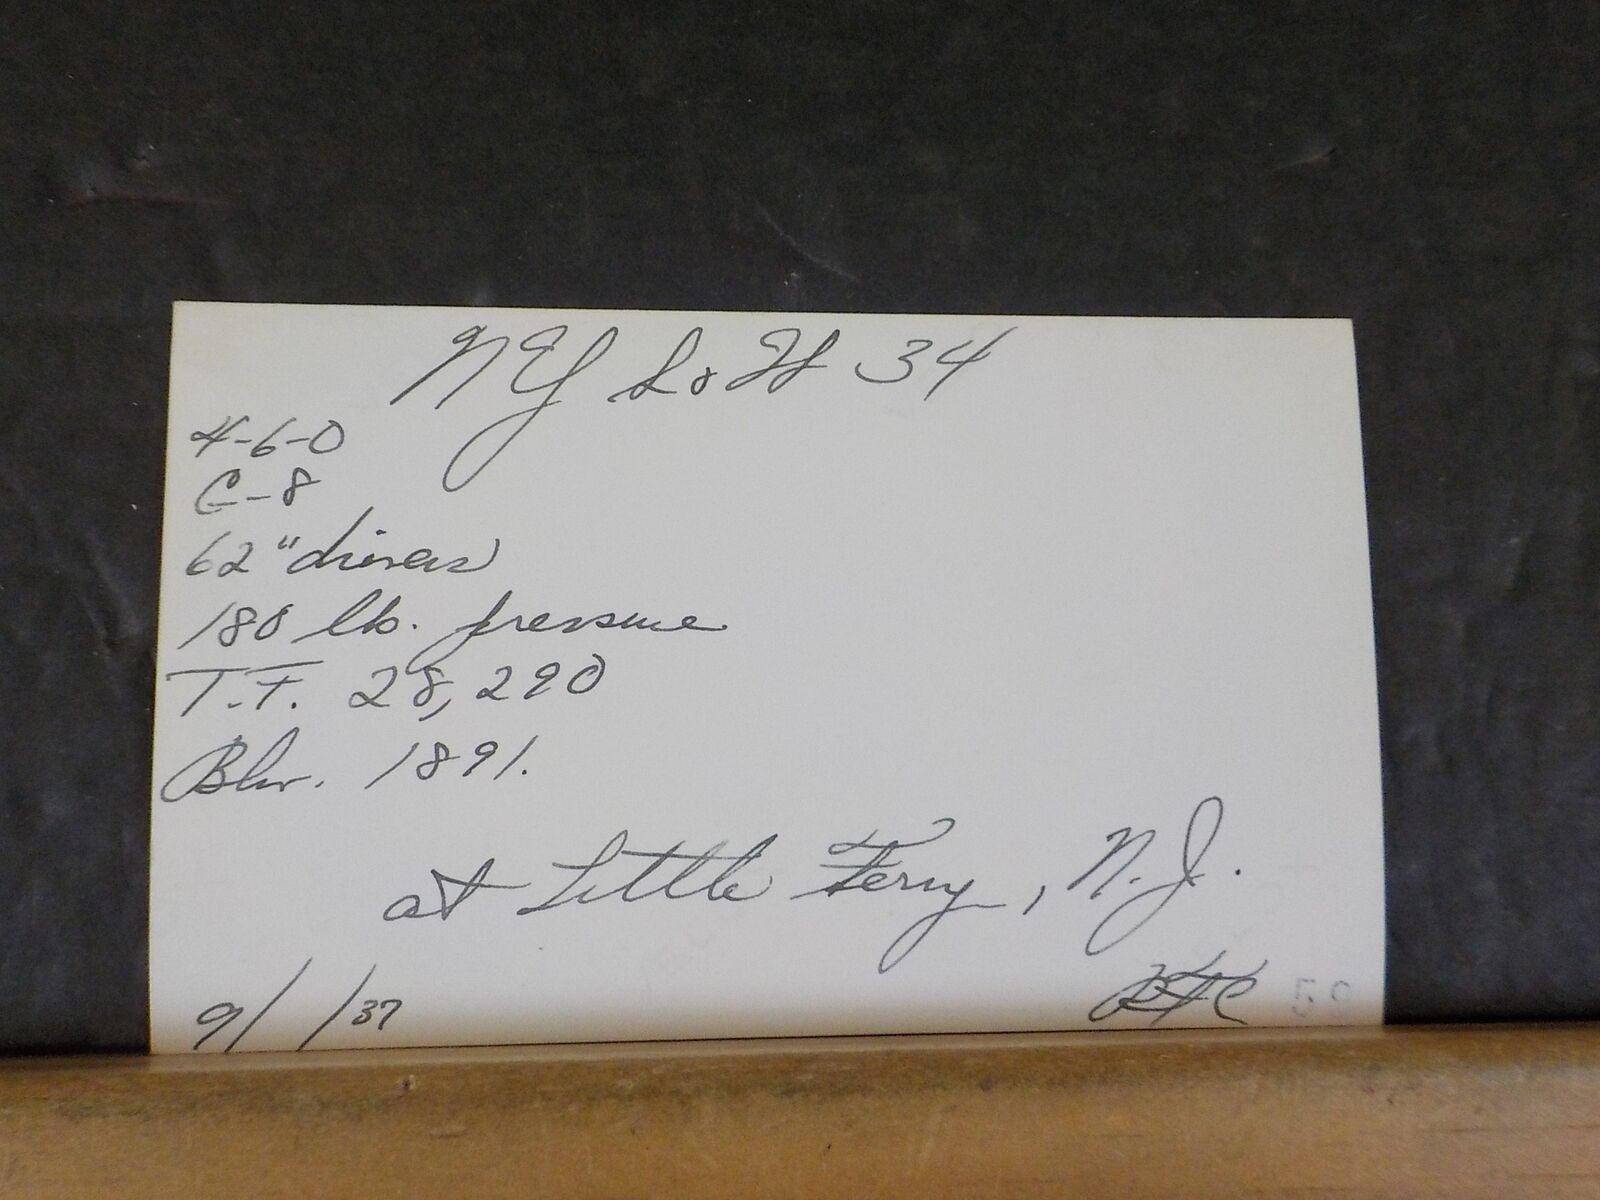 NY S & W 34
4-6-0
C-8
62" drivers
180 lb. pressure
T.F. 28,290
Blw. 1891.
at Little Ferry, N.J.
9/ /37
59